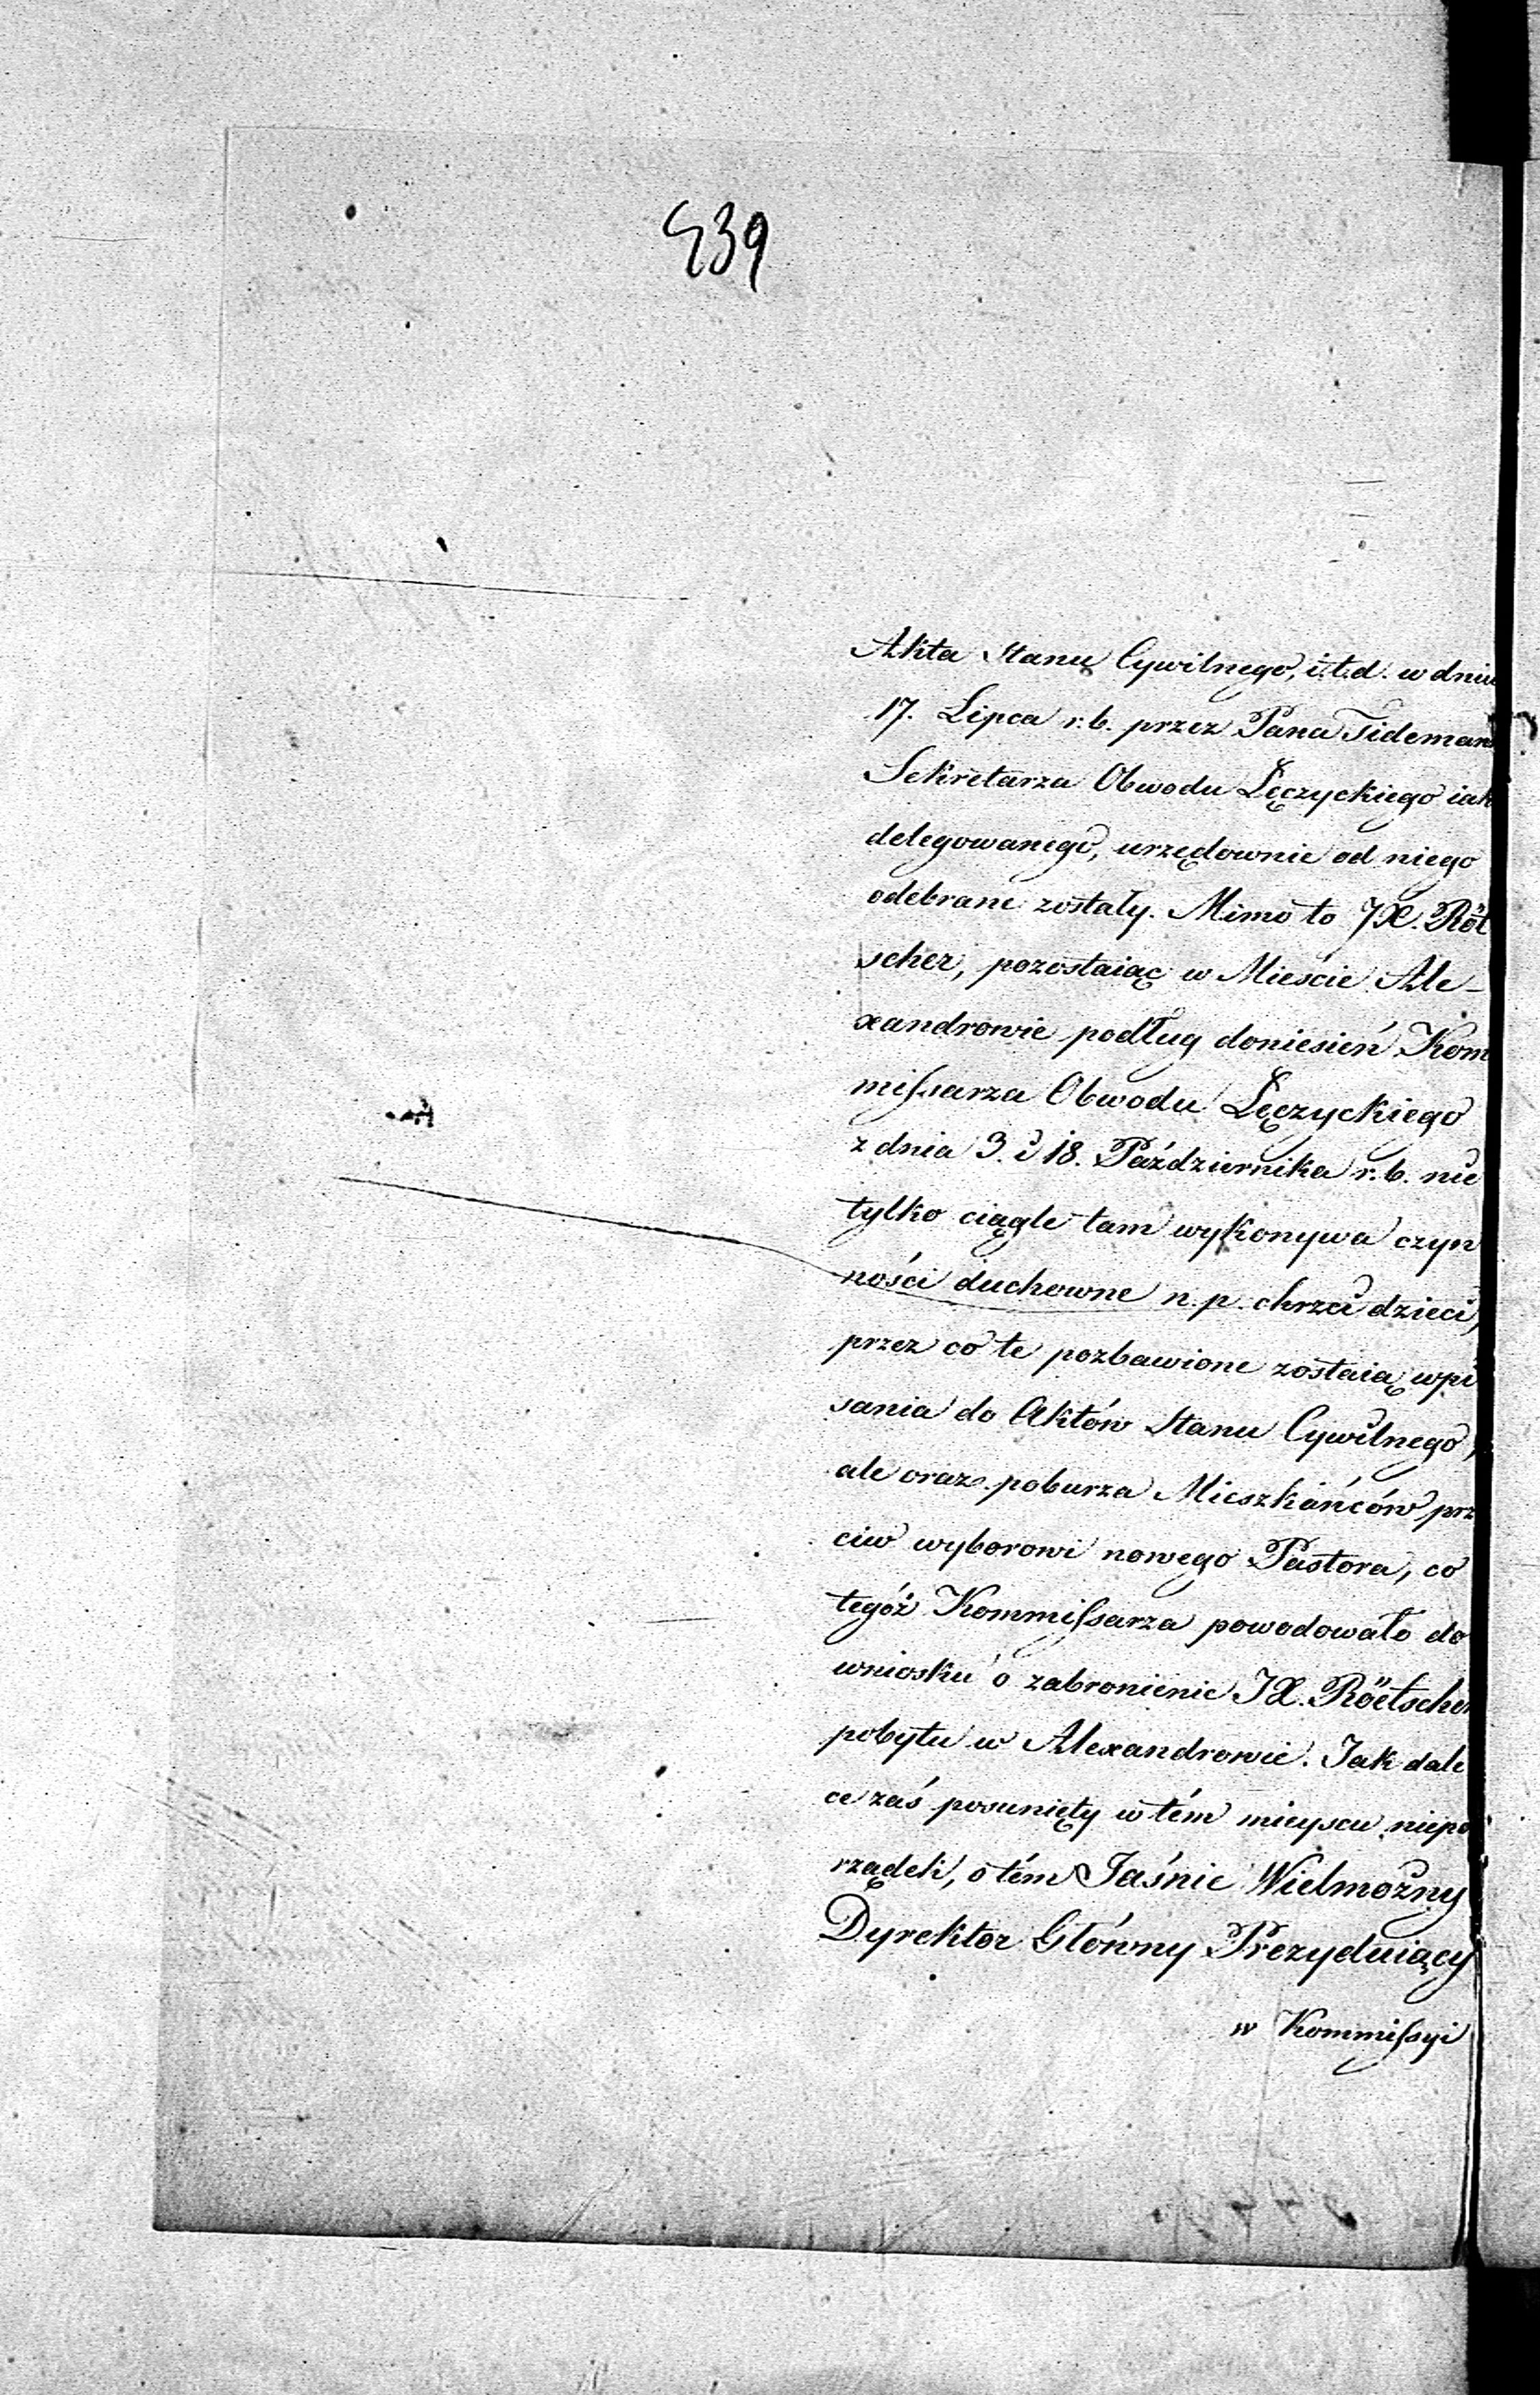 439
Akta Stanu Cywilnego, i.t.d. w dniu
17. Lipca r.b. przez Pana Tideman
Sekretarza Obwodu Łęczyckiego iak
delegowanego, urzędownie od niego
odebrane zostały. Mimo to JX. Röt
scher, pozostaiąc w Mieście Ale-
xandrowie podług doniesień Kom
missarza Obwodu Łęczyckiego
z dnia 3. i 18. Października r.b. nie
tylko ciągle tam wykonywa czyn
ności duchowne n.p. chrzci dzieci,
przez co te pozbawione zostaią wpi
sania do Aktów Stanu Cywilnego,
ale oraz poburza Mieszkańców prze
ciw wyborowi nowego Pastora, co
tegóż Kommissarza powodowało do
wniosku o zabronienie JX. Röetscher
pobytu w Alexandrowie. Jak dale
ce zaś posunięty w tém mieyscu niepo
rządek, o tém Jaśnie Wielmożny
Dyrektor Główny Prezyduiący
w Kommissyi